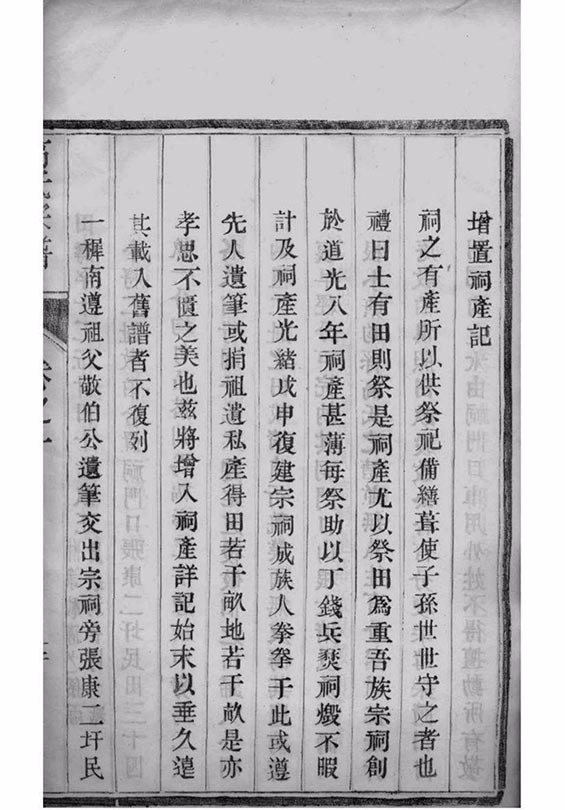 增置祠產記
祠之有產所以供祭祀備繕葺使子孫世世守之者也
禮曰士有田則祭是祠產尤以祭田為重吾族宗祠創
於道光八年祠產甚薄每祭助以丁錢兵燹祠燬不暇
計及祠產光緒戊申復建宗祠成族人拳拳于此或遵
先人遺筆或捐祖遺私產得田若干畝地若干畝是亦
孝思不匱之美也茲將增入祠產詳記始末以垂久遠
其載入舊譜者不復列
一樨南遵祖父敬伯公遺筆交出宗祠旁張康二圩民